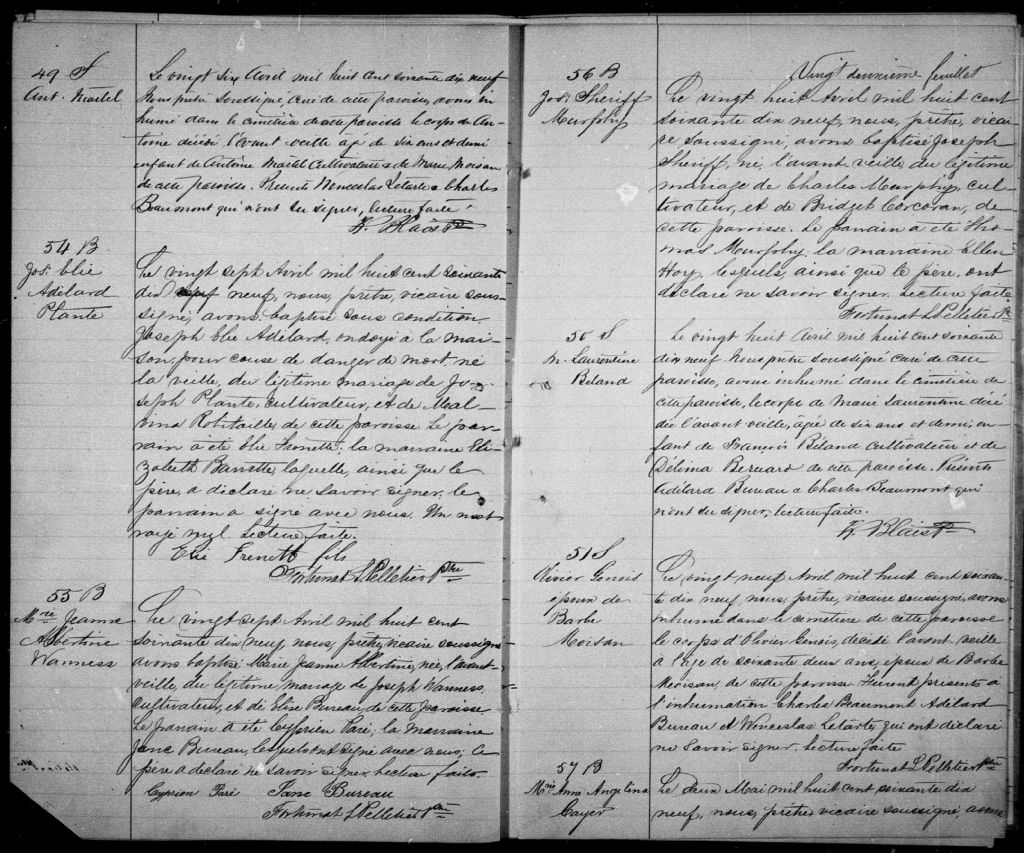 49 S
Ant. Martel
Le vingt six Avril mil huit cent soixante dix neuf
Nous prêtre soussigné, curé de cette paroisse, avons in
humé dans le cimetière de cette paroisse le corps de An-
toine décédé l'avant veille âgé de six ans et demi
enfant de Antoine Martel Cultivateur & de Marie Moisan
de cette paroisse. Présents Wenceslas Letarte & Charles
Beaumont qui n'ont su signer, lecture faite.
F. Blais Ptre
54 B
Jos. Elie
Adélard
Plante
Le vingt sept Avril mil huit cent soixante
dix neuf, nous, prêtre, vicaire sous-
signé, avons baptisé sous condition
Joseph Elie Adélard, ondoyé à la mai-
son, pour cause de danger de mort, né
la veille, du légitime mariage de Jo-
seph Plante, cultivateur, et de Mal-
vina Robitaille, de cette paroisse. Le par-
rain a été Elie Frenette; la marraine Eli-
zabeth Barrette, laquelle, ainsi que le
père, a déclaré ne savoir signer, le
parrain a signé avec nous. Un mot
rayé nul. Lecture faite.
Elie Frenette fils
Fortunat L Pelletier Ptre
55 B
Mrie Jeanne
Albertine
Wanness
Le vingt sept Avril mil huit cent
soixante dix neuf, nous, prêtre, vicaire soussigné
avons baptisé Marie Jeanne Albertine, née, l'avant-
veille, du légitime mariage de Joseph Wanness,
cultivateur, et de Elise Bureau, de cette paroisse.
Le parrain a été Cyprien Paré; la marraine
Jane Bureau, lesquels ont signé avec nous; le
père a déclaré ne savoir signer. Lecture faite.
Cyprien Paré Jane Bureau
Fortunat L Pelletier Ptre
Vingt deuxième feuillet
56 B
Jos. Sheriff
Murphy
Le vingt huit Avril mil huit cent
soixante dix neuf, nous, prêtre, vicai
re soussigné, avons baptisé Joseph
Sheriff, né, l'avant veille, du légitime
mariage de Charles Murphy, cul-
tivateur, et de Bridget Corcoran, de
cette paroisse. Le parrain a été Tho
mas Murphy, la marraine Ellen
Hoy, lesquels, ainsi que le père, ont
déclaré ne savoir signer. Lecture faite
Fortunat L Pelletier Ptre
50 S
M. Laurentine
Béland
Le vingt huit Avril mil huit cent soixante
dix neuf Nous prêtre soussigné curé de cette
paroisse, avons inhumé dans le cimetière de
cette paroisse, le corps de Marie Laurentine décé
dée l'avant veille, âgée de six ans et demi, en-
fant de François Béland Cultivateur et de
Délima Bernard de cette paroisse. Présents
Adélard Bureau & Charles Beaumont qui
n'ont su signer, lecture faite.
F. Blais Ptre
51 S
Olivier Genois
époux de
Barbe
Moisan
Le vingt neuf Avril mil huit cent soixan-
te dix neuf, nous, prêtre, vicaire soussigné, avons
inhumé dans le cimetière de cette paroisse
le corps d'Olivier Genois, décédé l'avant veille
à l'âge de soixante deux ans, époux de Barbe
Moisan, de cette paroisse. Furent présents à
l'inhumation Charles Beaumont Adélard
Bureau et Wenceslas Letarte, qui ont déclaré
ne savoir signer. Lecture faite
Fortunat L Pelletier Ptre
57 B
Mrie Anne Angelina
Cayer
Le deux Mai mil huit cent soixante dix
neuf, nous, prêtre, vicaire soussigné, avons